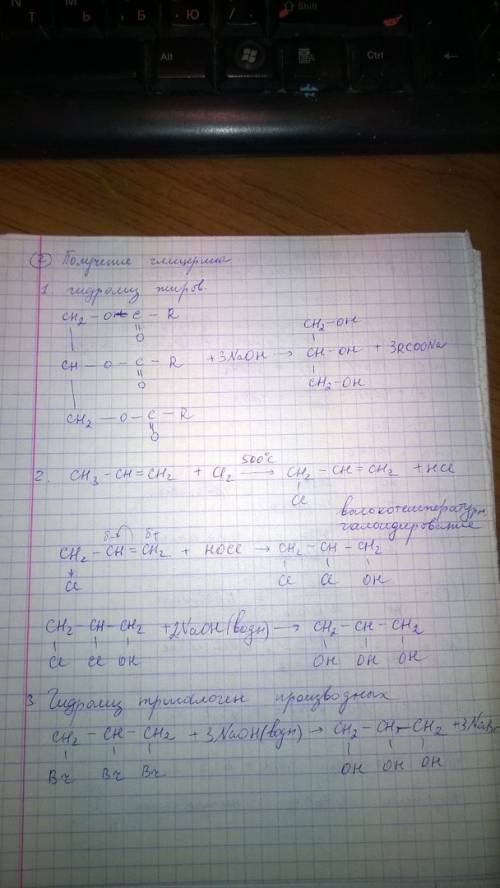 Т Ь Б Ю / . ⇧ Shift
N M < > ?
Alt Alt Ctrl ←
② Получение глицерина
1 гидролиз жиров.
CH₂ – O – C – R
|| O
CH – O – C – R + 3NaOH → CH₂–OH CH–OH CH₂–OH + 3RCOONa
|| O
CH₂ – O – C – R
|| O
2. CH₃ – CH = CH₂ + Cl₂ 500°C → CH₂ – CH = CH₂ + HCl
Cl
высокотемпературн.
галоидирование
δ- δ+
CH₂ – CH = CH₂ + HOCl → CH₂ – CH – CH₂
Cl Cl Cl OH
CH₂ – CH – CH₂ + 2NaOH (водн) → CH₂ – CH – CH₂
Cl Cl OH OH OH OH
3 Гидролиз тригалоген производных
CH₂ – CH – CH₂ + 3NaOH (водн) → CH₂ – CH – CH₂ + 3NaBr
Br Br Br OH OH OH